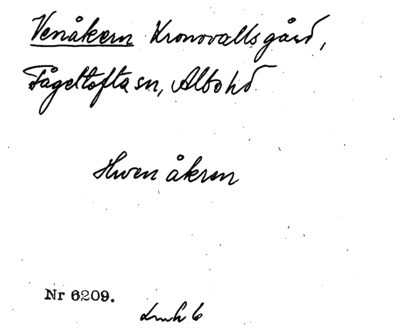 Venåkern Kronovalls gård,
Fågeltofta sn, Albo hd
Hwen åkren
Nr 6209.